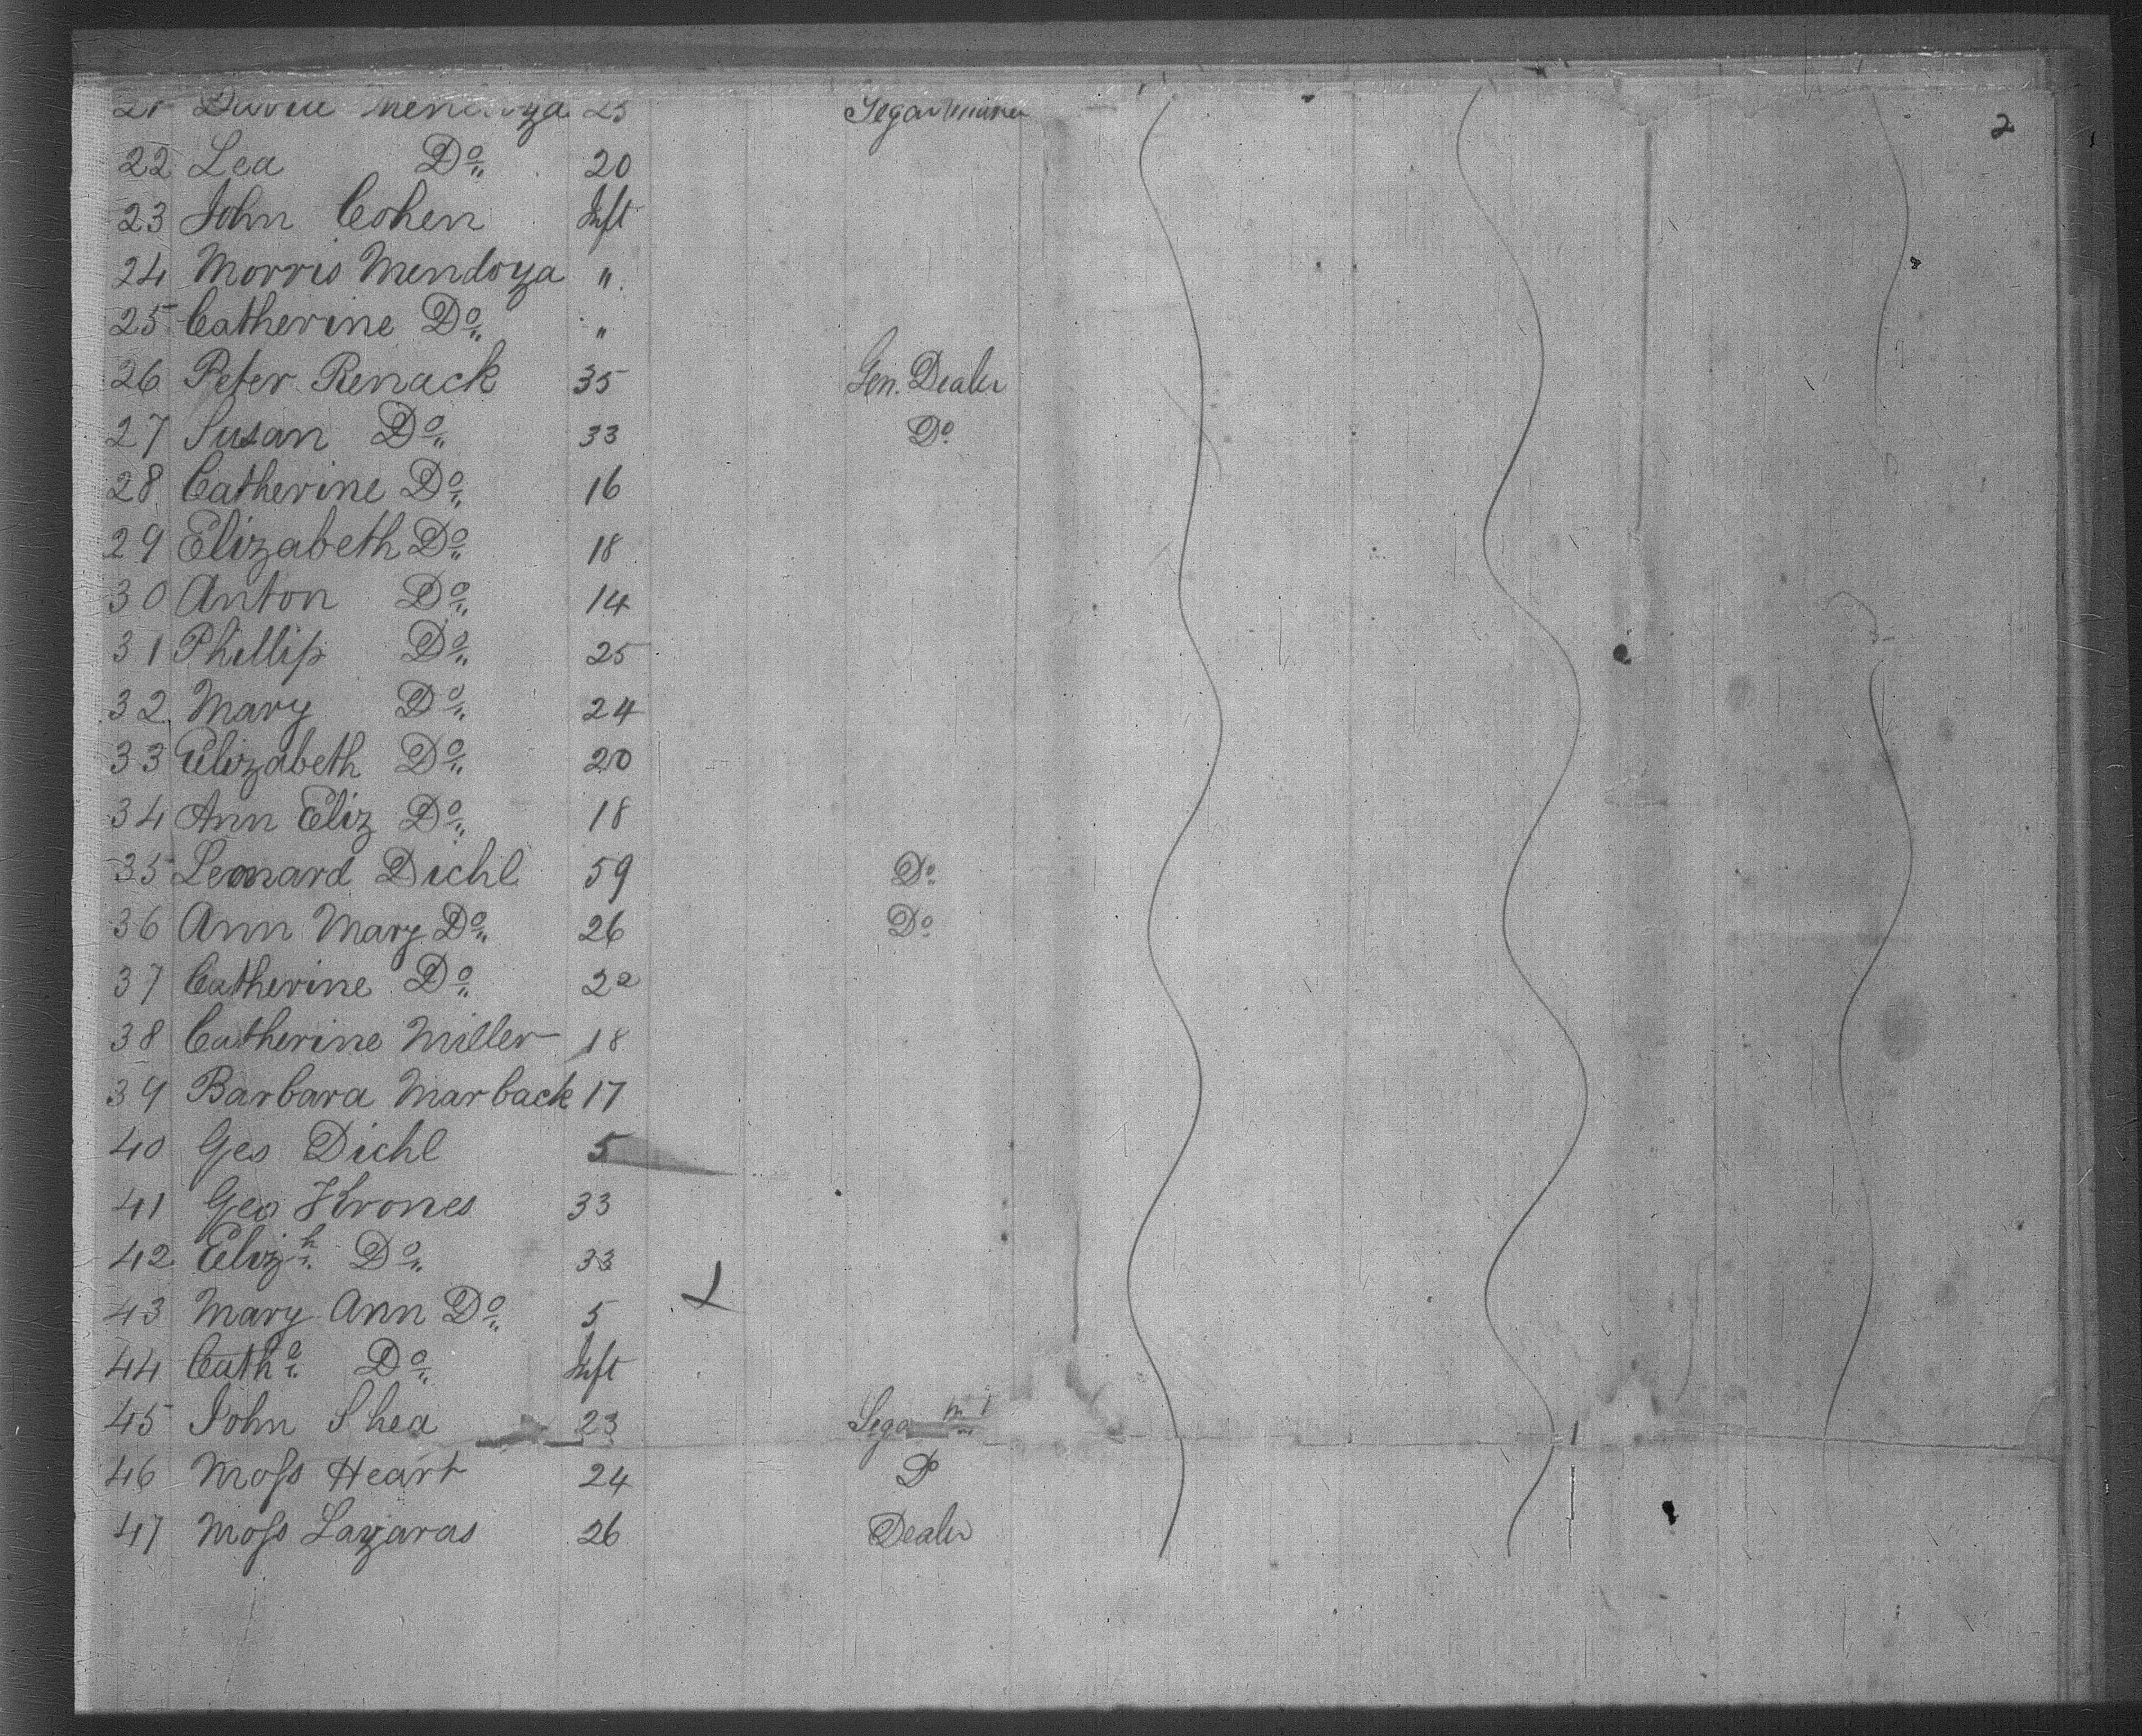 21 David Mendoza 25 Segar maker
2
22 Lea Do 20
23 John Cohen Inft
24 Morris Mendoza "
25 Catherine Do "
26 Peter Renack 35 Gen. Dealer
27 Susan Do 33 Do
28 Catherine Do 16
29 Elizabeth Do 18
30 Anton Do 14
31 Phillip Do 25
32 Mary Do 24
33 Elizabeth Do 20
34 Ann Eliz Do 18
35 Leonard Diehl 59 Do
36 Ann Mary Do 26 Do
37 Catherine Do 22
38 Catherine Miller 18
39 Barbara Marback 17
40 Geo Diehl 5
41 Geo Krones 33
42 Elizh Do 33
43 Mary Ann Do 5
44 Cathe Do Inft
45 John Shea 23
46 Moss Heart 24 Do
47 Moss Lazaras 26 Dealer